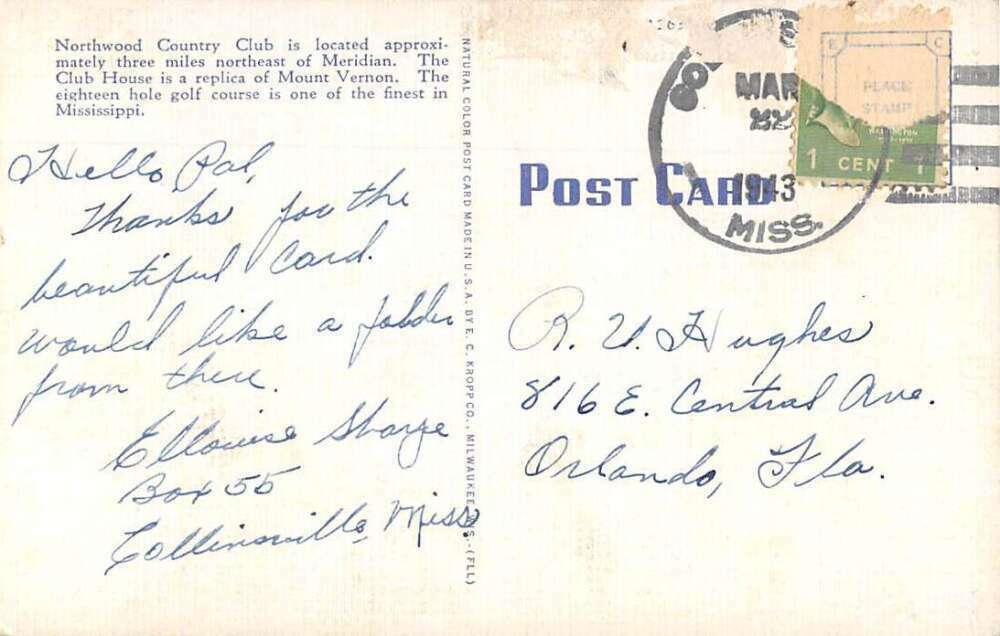 Northwood Country Club is located approxi-
mately three miles northeast of Meridian. The
Club House is a replica of Mount Vernon. The
eighteen hole golf course is one of the finest in
Mississippi.
Hello Pal,
Thanks for the
beautiful Card.
would like a folder
from there.
Ellouise
Box 55
Collinsville, Miss
NATURAL COLOR POST CARD MADE IN U.S.A. BY E. C. KROPP CO., MILWAUKEE, WIS.-(FLL)
POST CARD
MAR
22
1943
MISS.
E C
PLACE
STAMP
WASHINGTON
1 CENT 1
R. U. Hughes
816 E. Central Ave.
Orlando, Fla.